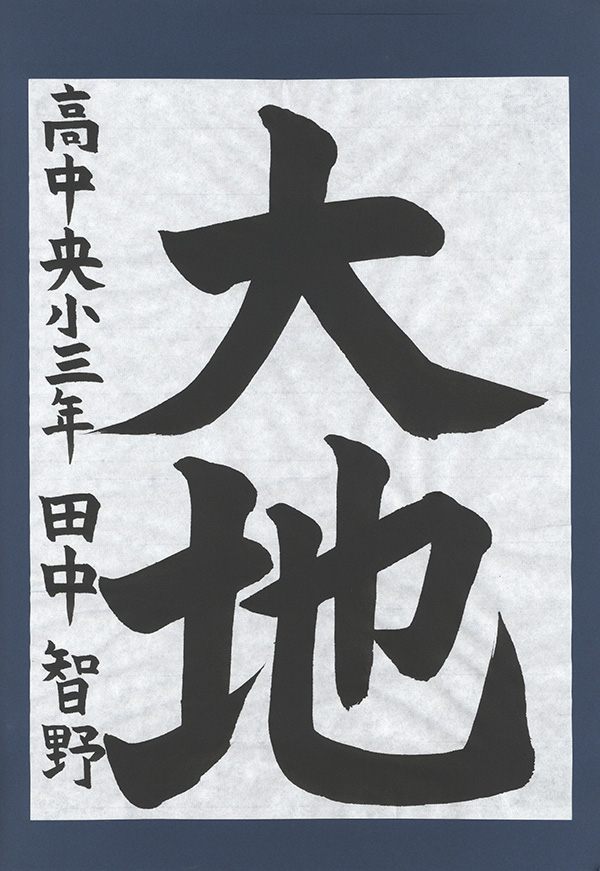 大地
高中央小三年 田中智野